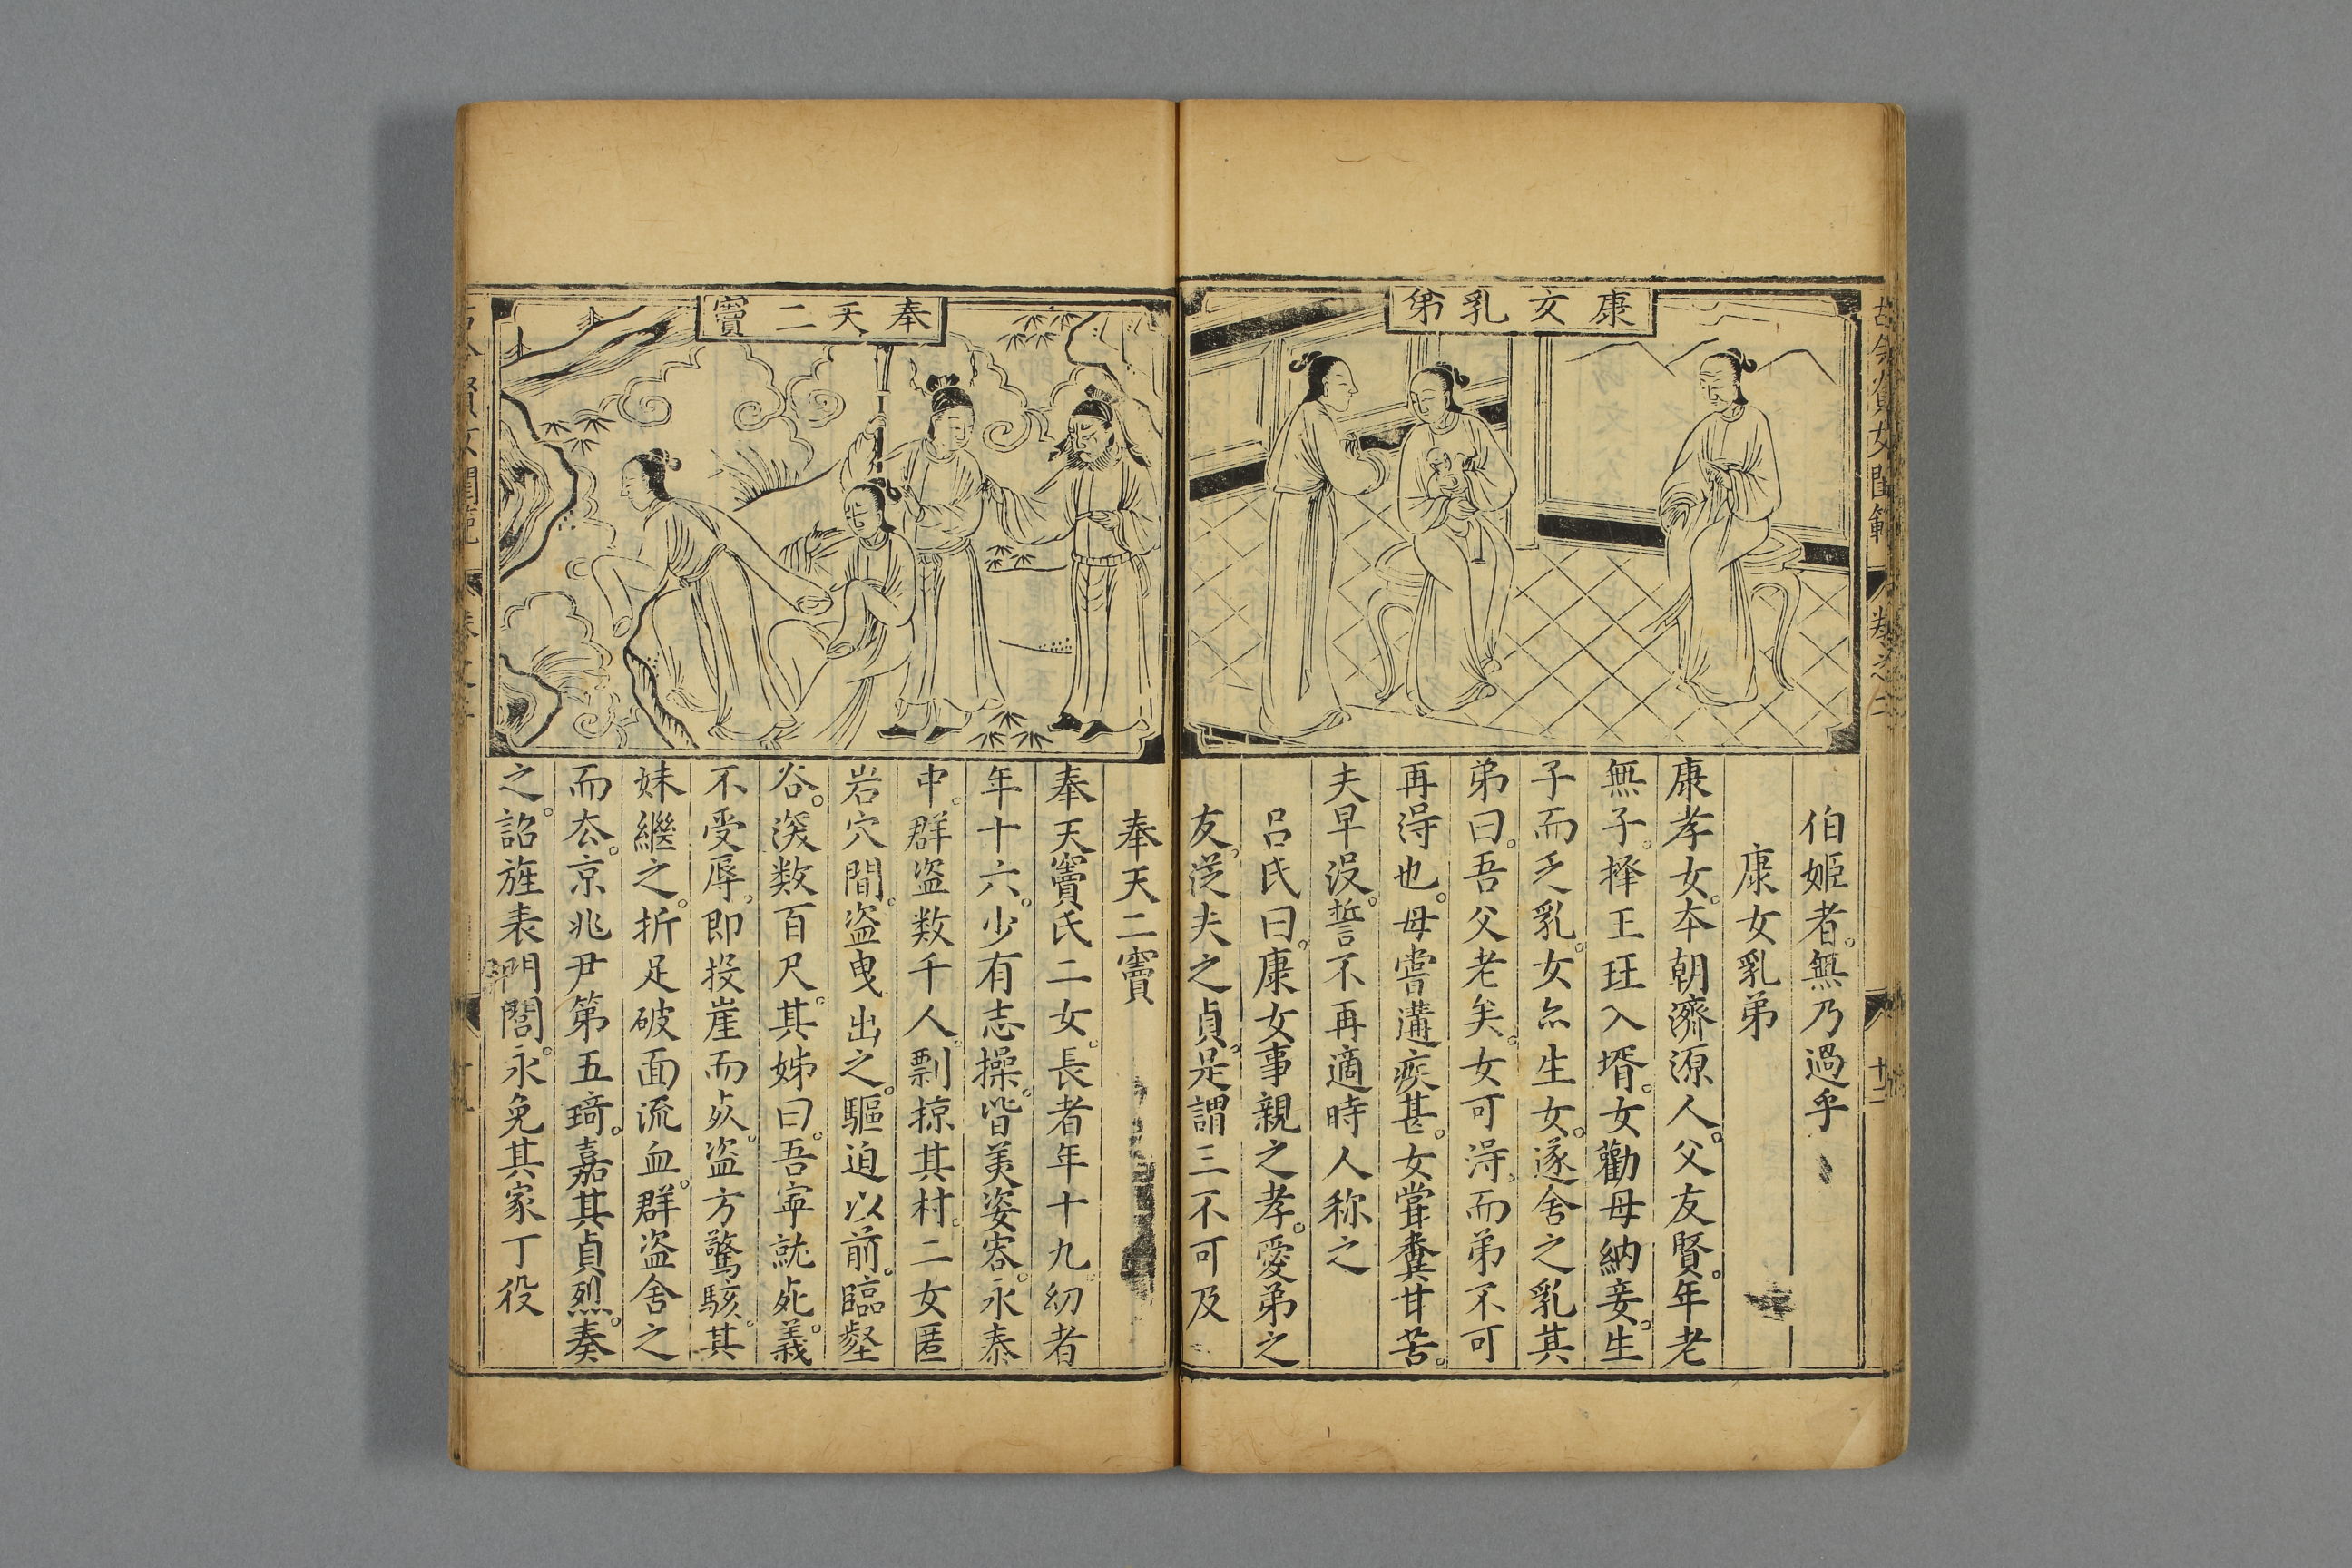 康女乳弟
伯姬者。無乃過乎
康女乳弟
康孝女。本朝濟源人。父友賢。年老
無子。擇王玨入壻。女勸母納妾。生
子而乏乳。女亦生女。遂舍之乳其
弟曰。吾父老矣。女可淂。而弟不可
再淂也。母嘗遘疾甚。女嘗糞甘苦。
夫早沒。誓不再適時人称之
呂氏曰。康女事親之孝。愛弟之
友。從夫之貞。是謂三不可及
奉天二竇
奉天二竇
奉天竇氏二女。長者年十九。幼者
年十六。少有志操。皆美姿容。永泰
中。群盗数千人。剽掠其村。二女匿
岩穴間。盗曳出之。驅迫以前。臨壑
谷。深数百尺。其姊曰。吾寜就死。義
不受辱。即投崖而死。盗方驚駭。其
妹繼之。折足破面流血。群盗舍之
而去。京兆尹第五琦。嘉其貞烈。奏
之。詔旌表門閭。永免其家丁役